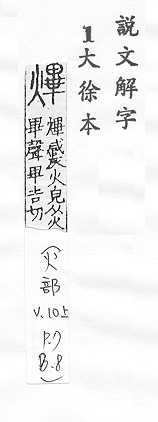 説文解字
1大徐本
熚
熚㷸火皃从火
畢聲卑吉切
(火部
V.10上
P.7
B.8)